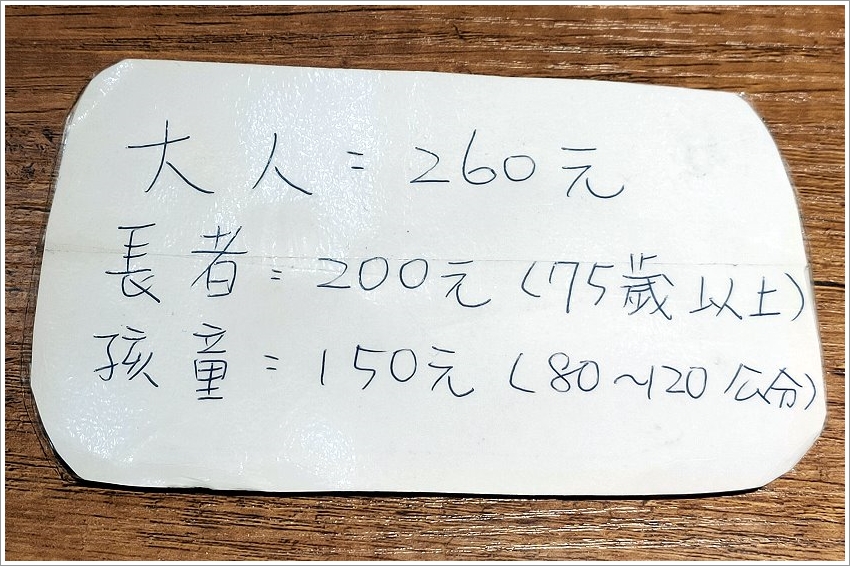 大人：260元
長者：200元（75歲以上）
孩童：150元（80～120公分）